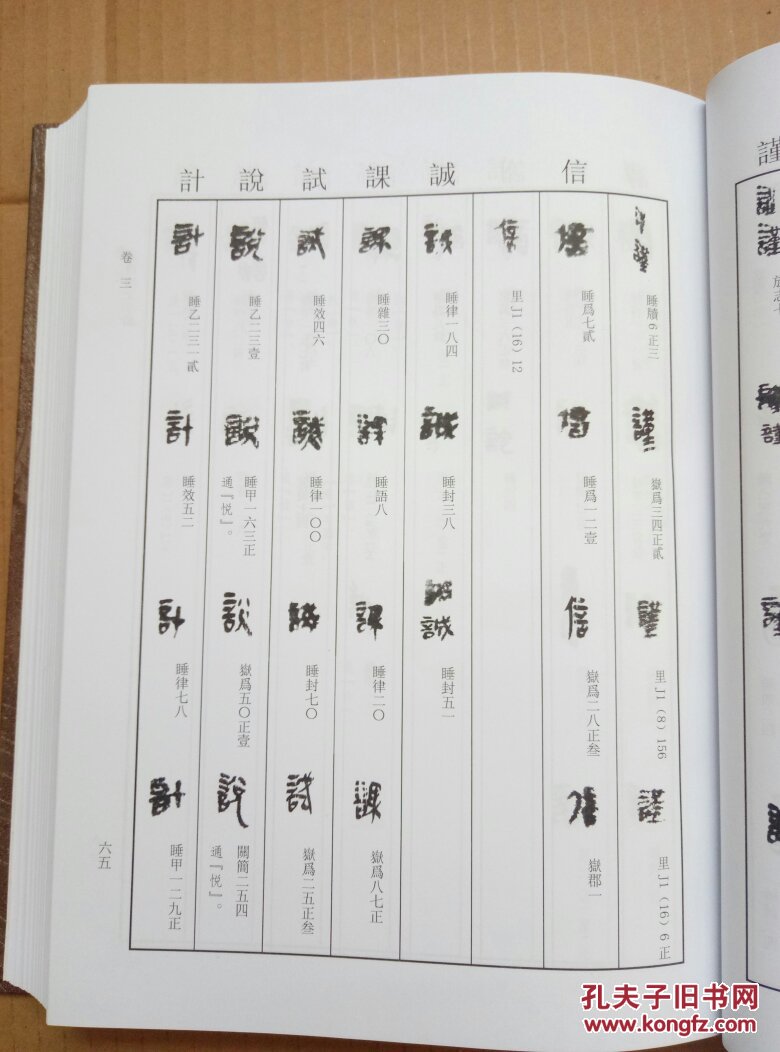 信
誠
課
試
說
計
睡牘6正三
嶽爲三四正貳
里J1（8）156
里J1（16）6正
睡爲七貳
睡爲一二壹
嶽爲二八正叁
嶽郡一
里J1（16）12
睡律一八四
睡封三八
睡封五一
睡雜三〇
睡語八
睡律二〇
嶽爲八七正
睡效四六
睡律一〇〇
睡封七〇
嶽爲二五正叁
睡乙二三壹
睡甲一六三正
通『悅』。
嶽爲五〇正壹
關簡二五四
通『悅』。
睡乙二三一貳
睡效五二
睡律七八
睡甲一二九正
卷三
六五
謹
孔夫子旧书网
www.kongfz.com